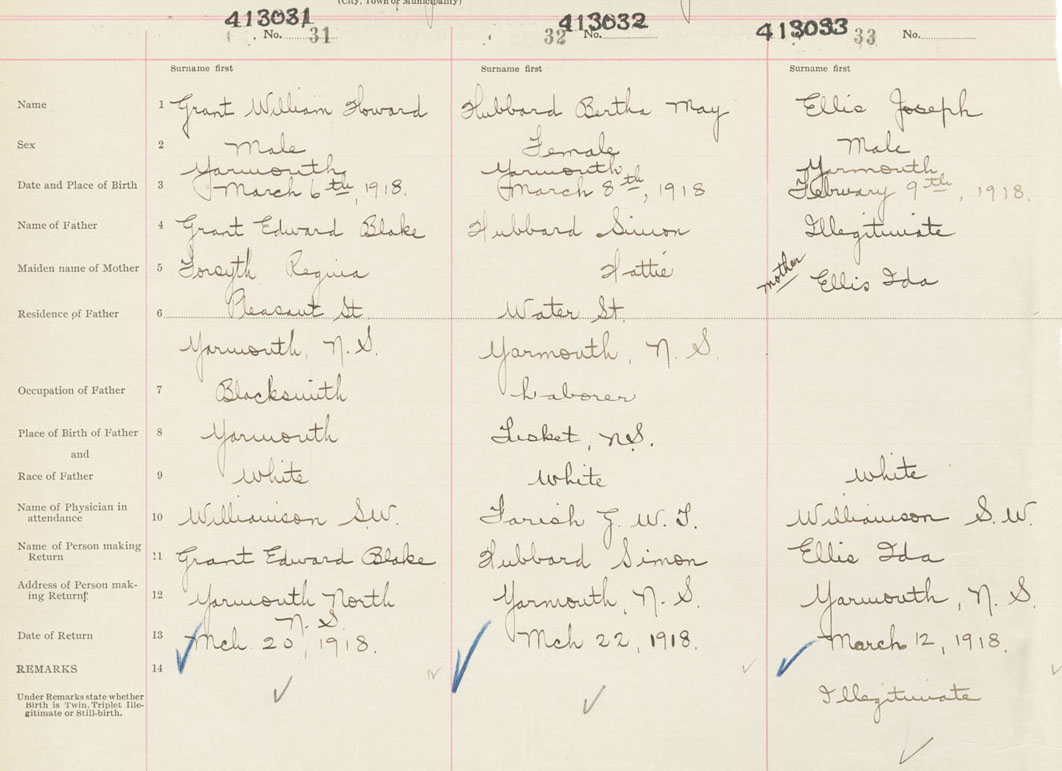 (City, Town or Municipality)
413031 413032 413033
No. 31 32 No. 33 No.
Surname first Surname first Surname first
Name 1 Grant William Howard Hubbard Bertha May Ellis Joseph
Sex 2 Male Female Male
Yarmouth Yarmouth Yarmouth
Date and Place of Birth 3 March 6th, 1918. March 8th, 1918 February 9th, 1918.
Name of Father 4 Grant Edward Blake Hubbard Simon Illegitimate
Maiden name of Mother 5 Forsyth Regina Hattie mother Ellis Ida
Residence of Father 6 Pleasant St Water St.
Yarmouth, N.S. Yarmouth, N.S.
Occupation of Father 7 Blacksmith Laborer
Place of Birth of Father 8 Yarmouth Tusket, N.S.
and
Race of Father 9 White White White
Name of Physician in
attendance 10 Williamson S.W. Farish G. W. T. Williamson S.W.
Name of Person making
Return 11 Grant Edward Blake Hubbard Simon Ellis Ida
Address of Person mak-
ing Return 12 Yarmouth North Yarmouth, N.S. Yarmouth, N.S.
N.S.
Date of Return 13 Mch 20, 1918. Mch 22, 1918. March 12, 1918.
REMARKS 14
Under Remarks state whether
Birth is Twin, Triplet Ille-
gitimate or Still-birth.
Illegitimate